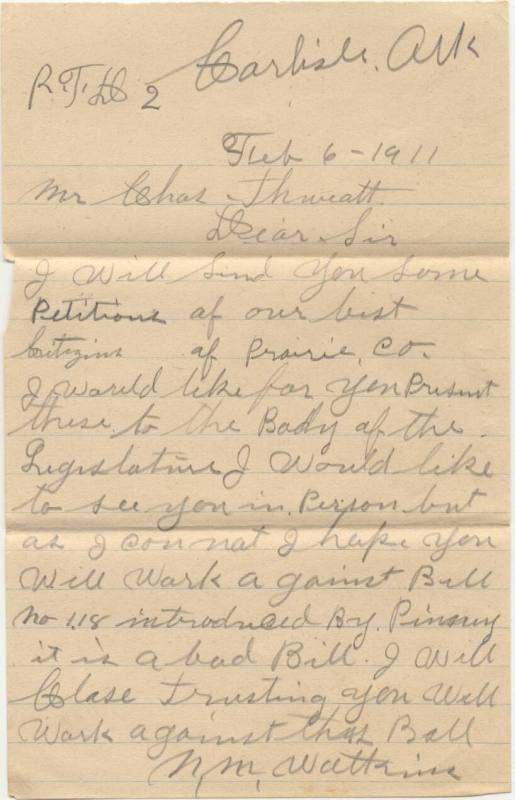 Carlisle, Ark
R.F.D 2
Feb 6-1911
Mr Chas. Thweatt.
Dear. Sir
I Will Send You Some
Petitions of our best
Citizins of Prairie, Co.
I Would like for You Present
these. to the Body of the.
Legislature I Would like
to see you in. Person but
as I con not I hope You
Will Work a gainst Bill
no 118 introduced By. Pinney
it is a bad Bill. I Will
Close Trusting you Will
Work against this Bill
N. M. Watkins